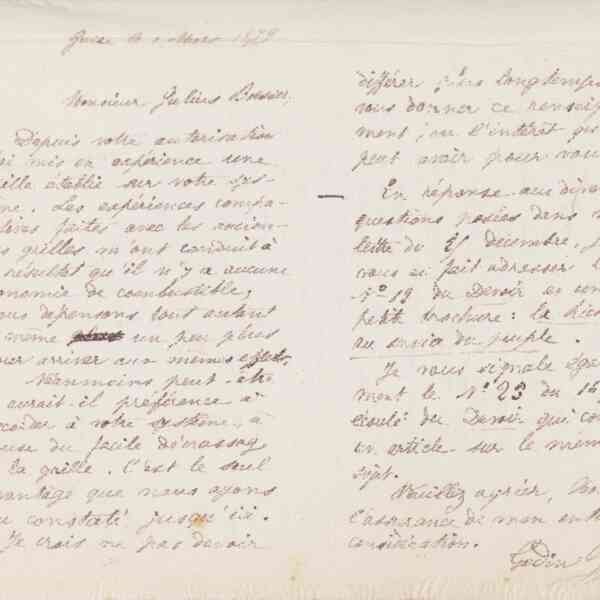 Guise le 1 Mars 1879
Monsieur Julius
Depuis votre autorisation
ai mis en expérience une
ille établie sur votre sys-
me. Les expériences compa-
tives faites avec les ancien-
s grilles m'ont conduit à
résultat que il n'y a aucune
onomie de combustible,
ous dépensons tout autant
même un peu plus
our arriver aux mêmes effets.
Néanmoins peut-être
aurait-il préférence à
ccorder à votre système, à
use du facile décrassag
la grille. C'est le seul
vantage que nous ayons
u constaté jusqu'ici.
Je crois ne pas devoir
différer plus longtemps
vous donner ce renseig
ment, vu l'intérêt qu
peut avoir pour vou
En réponse aux
questions posées dans
lettre du décembre, j
vous ai fait adresser l
No 19 du Devoir et un
petite brochure: la
au service du peuple.
Je vous signale éga
ment le No 23 du 16
écoulé du Devoir qui co
un article sur le mêm
sujet.
Veuillez agréer,
l'assurance de mon enti
considération.
Godin